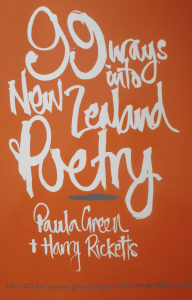 99 ways
into
New Zealand
Poetry
Paula Green
+ Harry Ricketts